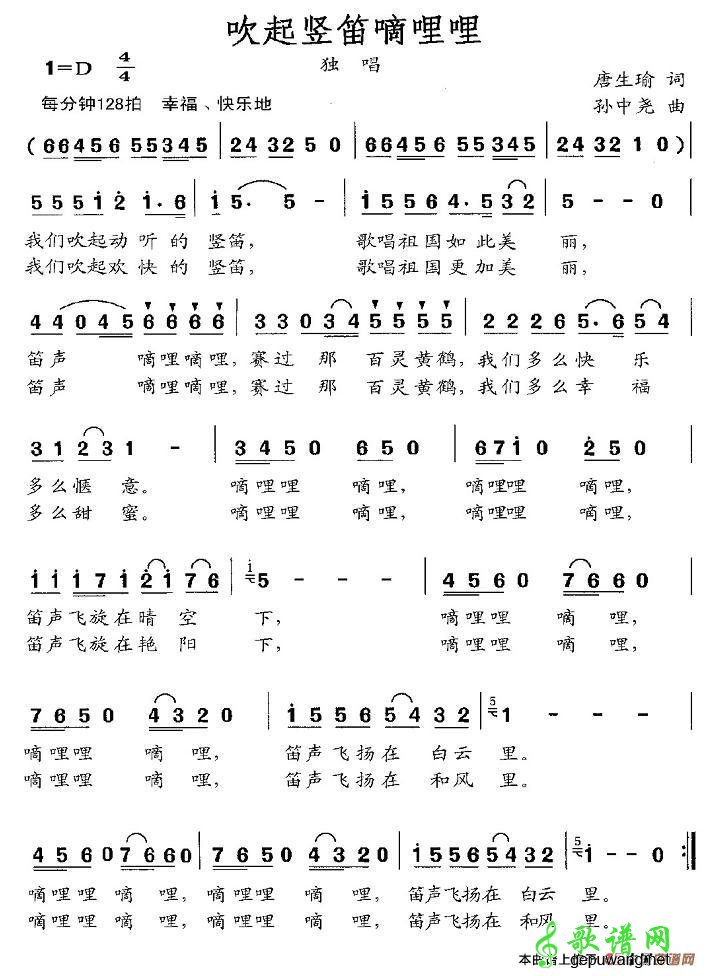 吹起竖笛嘀哩哩
独 唱
1=D 4/4
唐生瑜 词
每分钟128拍 幸福、快乐地
孙中尧 曲
( 66456 55345 | 2432 50 | 66456 55345 | 2432 10 )
555i2 i·6 | i5· 5 - | i5564·532 | 5 - - 0
我们吹起动 听 的 竖笛, 歌唱祖国如此美 丽,
我们吹起欢 快 的 竖笛, 歌唱祖国更加美 丽,
44045 6666 | 330345555 | 22265·654
笛声 嘀哩嘀哩,赛过 那 百灵黄鹤,我们多么快 乐
笛声 嘀哩嘀哩,赛过 那 百灵黄鹤,我们多么幸 福
31231 - | 3450 650 | 67i0 250
多么惬 意。 嘀哩哩 嘀哩, 嘀哩哩 嘀哩,
多么甜 蜜。 嘀哩哩 嘀哩, 嘀哩哩 嘀哩,
ii17i2i76 | i5 - - - | 4560 7660
笛声飞旋在晴 空 下, 嘀哩哩 嘀 哩,
笛声飞旋在艳 阳 下, 嘀哩哩 嘀 哩,
7650 4320 | i5565432 | 51 - - -
嘀哩哩 嘀 哩, 笛声飞扬在 白云 里。
嘀哩哩 嘀 哩, 笛声飞扬在 和风 里。
4560 7660 | 7650 4320 | i5565432 | 5i - - 0 :||
嘀哩哩 嘀 哩, 嘀哩哩 嘀 哩, 笛声飞扬在 白云 里。
嘀哩哩 嘀 哩, 嘀哩哩 嘀 哩, 笛声飞扬在 和风 里。
歌谱网
gepuwang.net